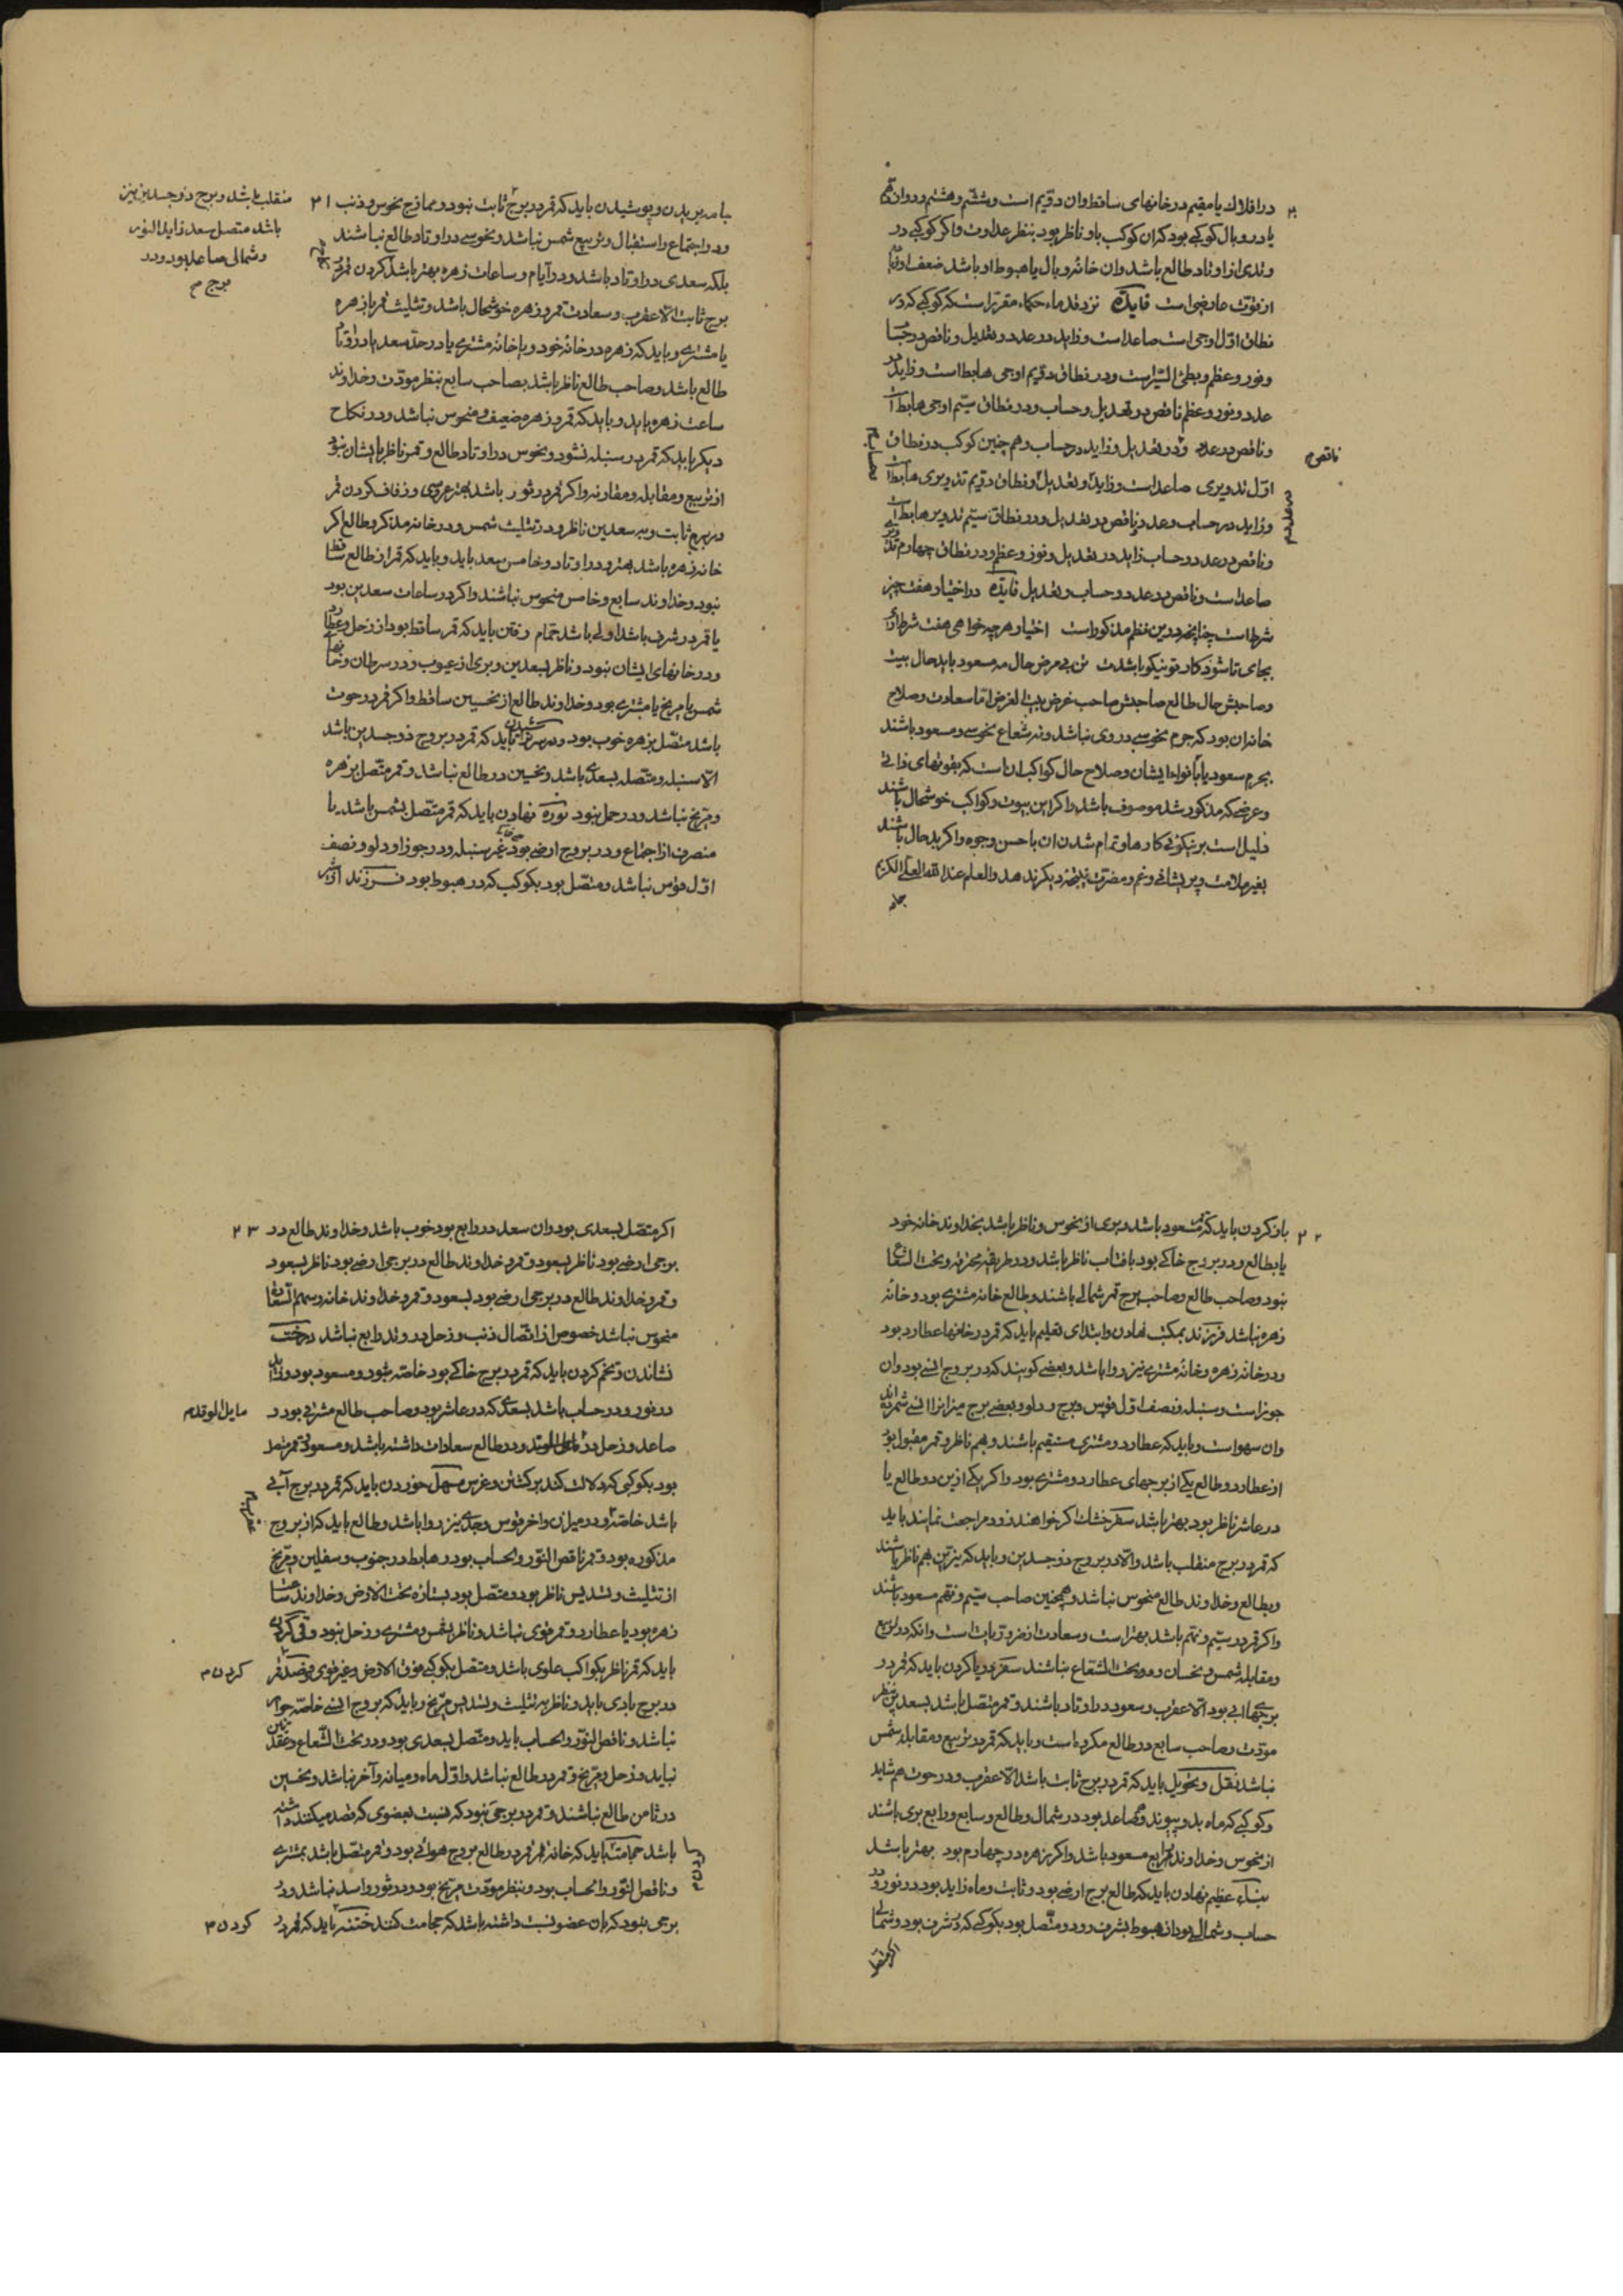 در افلاك يا مقيم در خانهای ساقط وان دويم است وششم وهشتم ودوازدهم
يا در وبال کوکبی بود که ان کوکب باو ناظر بود بنظر عداوت واکر کوکبی در
وتدی از اوتاد طالع باشد وان خانه وبال يا هبوط او باشد ضعف
از قوت عارضی است فايده نزد قدماء حکماء مقرر است که کوکبی که در
نطاق اول اوجی است صاعد است وزايد در عدد وتعديل وناقص در حساب
ونور وعظم وبطئ السير است ودر نطاق دويم اوجی هابط است وزايد در
عدد ونور وعظم ناقص در تعديل وحساب ودر نطاق سيم اوجی هابط است
وناقص در عدد ودر تعديل وزايد در حساب وهم چنين کوکب در نطاق
ناقص م
اول تدويری صاعد است وزايد وتعديل ونطاق دويم تدويری هابط است
وزايد در حساب وعدد وناقص در تعديل ودر نطاق سيم تدوير هابط است
وناقص در عدد وحساب زايد در تعديل ونور وعظم ودر نطاق چهارم
صاعد است وناقص در عدد وحساب وتعديل فايده در اختيار هفت چيز
شرط است چنانچه درين نظم مذکور است اختيار هر چه خواهی هفت شرط
بجای تا شود کار تو نيکو باشدت حال مه مسعود بايد حال بيت
وصاحبش حال طالع صاحبش صاحب غرض بيت الغرض اما سعادت وصلاح
خانه ان بود که جرم نحوسی در وی نباشد ونه شعاع نحوسی ومسعود باشند
بجرم سعود يا بانوار ايشان وصلاح حال کواکب ان است که بقوتهای ذاتی
وعرضی که مذکور شد موصوف باشد واکر اين بيوت وکواکب خوشحال باشند
دليل است بر نيکوئی کارها وتمام شدن ان باحسن وجوه واکر بدحال باشند
بغير ملامت وپريشانی وغم ومضرت نتيجه ديکر ندهد والعلم عند الله العلی الکريم
جامه
جامه بريدن وپوشيدن بايد که قمر در برج ثابت نبود وممازج نحوس وذنب ٢١
ودر اجتماع واستقبال وتربيع شمس نباشد ونحوسی در اوتاد طالع نباشند
بلکه سعدی در اوتاد باشد ودر ايام وساعات زهره بهتر باشد کردن قمر در
برج ثابت الا عقرب وسعادت قمر وزهره خوشحال باشد وتثليث قمر با زهره
يا مشتری وبايد که زهره در خانه خود ويا خانه مشتری يا در حد سعد يا در اوتاد
طالع باشد وصاحب طالع ناظر باشد بصاحب سابع بنظر مودت وخداوند
ساعت زهره بايد وبايد که قمر وزهره ضعيف ومنحوس نباشد ودر نکاح
ديکر بايد که قمر در سنبله نشود ونحوس در اوتاد طالع وقمر ناظر بايشان نبود
از تربيع ومقابله ومقارنه واکر قمر در ثور باشد بهتر عروسی وزفاف کردن قمر
در برج ثابت وبه سعدين ناظر ودر تثليث شمس ودر خانه مذکر وطالع اکر
خانه زهره باشد بهتر ودر اوتاد وخامس سعد بايد وبايد که قمر از طالع ساقط
نبود وخداوند سابع وخامس منحوس نباشند واکر در ساعات سعدين بود
يا قمر در شرف باشد اولی باشد حمام رفتن بايد که قمر ساقط بود از زحل وعطارد
ودر خانهای ايشان نبود وناظر بسعدين وبری از عيوب ودر سرطان
شمس يا مريخ يا مشتری بود وخداوند طالع از نحسين ساقط واکر قمر در حوت
باشد متصل بزهره خوب بود وسر تراشيدن بايد که قمر در بروج ذو جسدين باشد
الا سنبله ومتصله بسعدی باشد ونحسين در طالع نباشد وقمر متصل بزهره
ومريخ نباشد ودر حمل نبود نوره نهادن بايد که قمر متصل بشمس باشد يا
منصرف از اجتماع ودر بروج ارضی بود غير سنبله ودر جوزا ودلو ونصف
اول قوس نباشد ومتصل بود بکوکب که در هبوط بود فرزند از شير
منقلب باشد وبرج ذو جسدين نيز
باشد متصل سعد زايد النور
وشمالی صاعد بود ودر
برج م
٢٢ باز کردن بايد که قمر مسعود باشد وبری از نحوس وناظر باشد بخداوند خانه خود
يا بطالع ودر بروج خاکی بود بافتاب ناظر باشد ودر طريقه محترقه وتحت الشعاع
نبود وصاحب طالع وصاحب برج قمر شمالی باشند وطالع خانه مشتری بود وخانه
زهره نباشد فرزند بمکتب نهادن وابتدای تعليم بايد که قمر در خانها عطارد بود
ودر خانه زهره وخانه مشتری نيز روا باشد وبعضی کويند که در بروج انسی بود وان
جوزاست وسنبله ونصف اول قوس وبرج دلو وبعضی برج ميزانرا انسی شمرده اند
وان سهواست وبايد که عطارد ومشتری مستقيم باشند وبهم ناظر وقمر مقبول بود
از عطارد وطالع يکی از برجهای عطارد ومشتری بود واکر يکی ازين دو طالع يا
در عاشر ناظر بود بهتر باشد سفر خشك اکر خواهند زود مراجعت نمايند بايد
که قمر در برج منقلب باشد والا در بروج ذو جسدين وبايد که نيرين بهم ناظر باشند
وبطالع وخداوند طالع منحوس نباشد وهمچنين صاحب سيم ونهم مسعود باشند
واکر قمر در سيم ونهم باشد بهتر است وسعادت از ضروريات است وانکه در تربيع
ومقابله شمس ونحسان ودر تحت الشعاع نباشند سفر دريا کردن بايد که قمر در
برجهای ابی بود الا عقرب وسعود در اوتاد باشند وقمر متصل باشد بسعدين بنظر
مودت وصاحب سابع در طالع مکروه است وبايد که قمر در تربيع ومقابله شمس
نباشد نقل وتحويل بايد که قمر در برج ثابت باشد الا عقرب ودر حوت هم شايد
وکوکبی که ماه بدو پيوندد صاعد بود در شمال وطالع وسابع ورابع بری باشند
از نحوس وخداوند رابع مسعود باشد واکر زهره در چهارم بود بهتر باشد
بناء عظيم نهادن بايد که طالع برج ارضی بود وثابت وماه زايد بود در نور ودر
حساب وشمالی بود از هبوط بشرف رود ومتصل بود بکوکبی که در شرف بود وشمالی
اکر متصل
اکر متصل بسعدی بود وان سعد در رابع بود خوب باشد وخداوند طالع در ٢٣
برجی ارضی بود ناظر بسعود وقمر وخداوند طالع در برجی ارضی بود ناظر بسعود
وقمر وخداوند طالع در برجی ارضی بود بسعود وقمر وخداوند خانه وسهم السعادة
منحوس نباشد خصوص از اتصال ذنب وزحل در وتد رابع نباشد درخت
نشاندن وتخم کردن بايد که قمر در برج خاکی بود خاصه ثور ومسعود بود وزايد
در نور ودر حساب باشد بسعدی که در عاشر بود وصاحب طالع مشرقی بود و
مايل الوتد م
صاعد وزحل در مايل الوتد ودر طالع سعادات داشته باشد ومسعود
بود بکوکبی که دلالت کند بر کشتن وغرس مسهل خوردن بايد که قمر در برج آبی
باشد خاصه ودر ميزان واخر قوس وجدی نيز روا باشد وطالع بايد که از بروج
مذکوره بود وقمر ناقص النور والحساب بود وهابط در جنوب وسفلين ومريخ
از تثليث وتسديس ناظر بود ومتصل بود بستاره تحت الارض وخداوند ساعت
زهره بود يا عطارد وقمر قوی نباشد وناظر بشمس ومشتری وزحل نبود وقی کردن
بايد که قمر ناظر بکواکب علوی باشد ومتصل بکوکبی فوق الارض وغير قوی فصد قمر
کردن م
در برج بادی بايد وناظر به تثليث وتسديس مريخ وبايد که بروج انسی خاصه جوزا
نباشد وناقص النور والحساب بايد ومتصل بسعدی بود ودر تحت الشعاع وعقدتين
نبايد وزحل ومريخ وقمر در طالع نباشد واول ماه وميانه وآخر نباشد ونحسين
در ثامن طالع نباشند وقمر در برجی نبود که نسبت بعضوی که فصد ميکنند داشته
باشد حجامت بايد که خانه قمر وقمر در طالع بروج هوائی بود وقمر متصل باشد بمشتری
وناقص النور والحساب بود وبنظر مودت مريخ بود ودر ثور واسد نباشد ودر
برجی نبود که بان عضو نسبت داشته باشد که حجامت کنند ختنه بايد که قمر در
کردن م